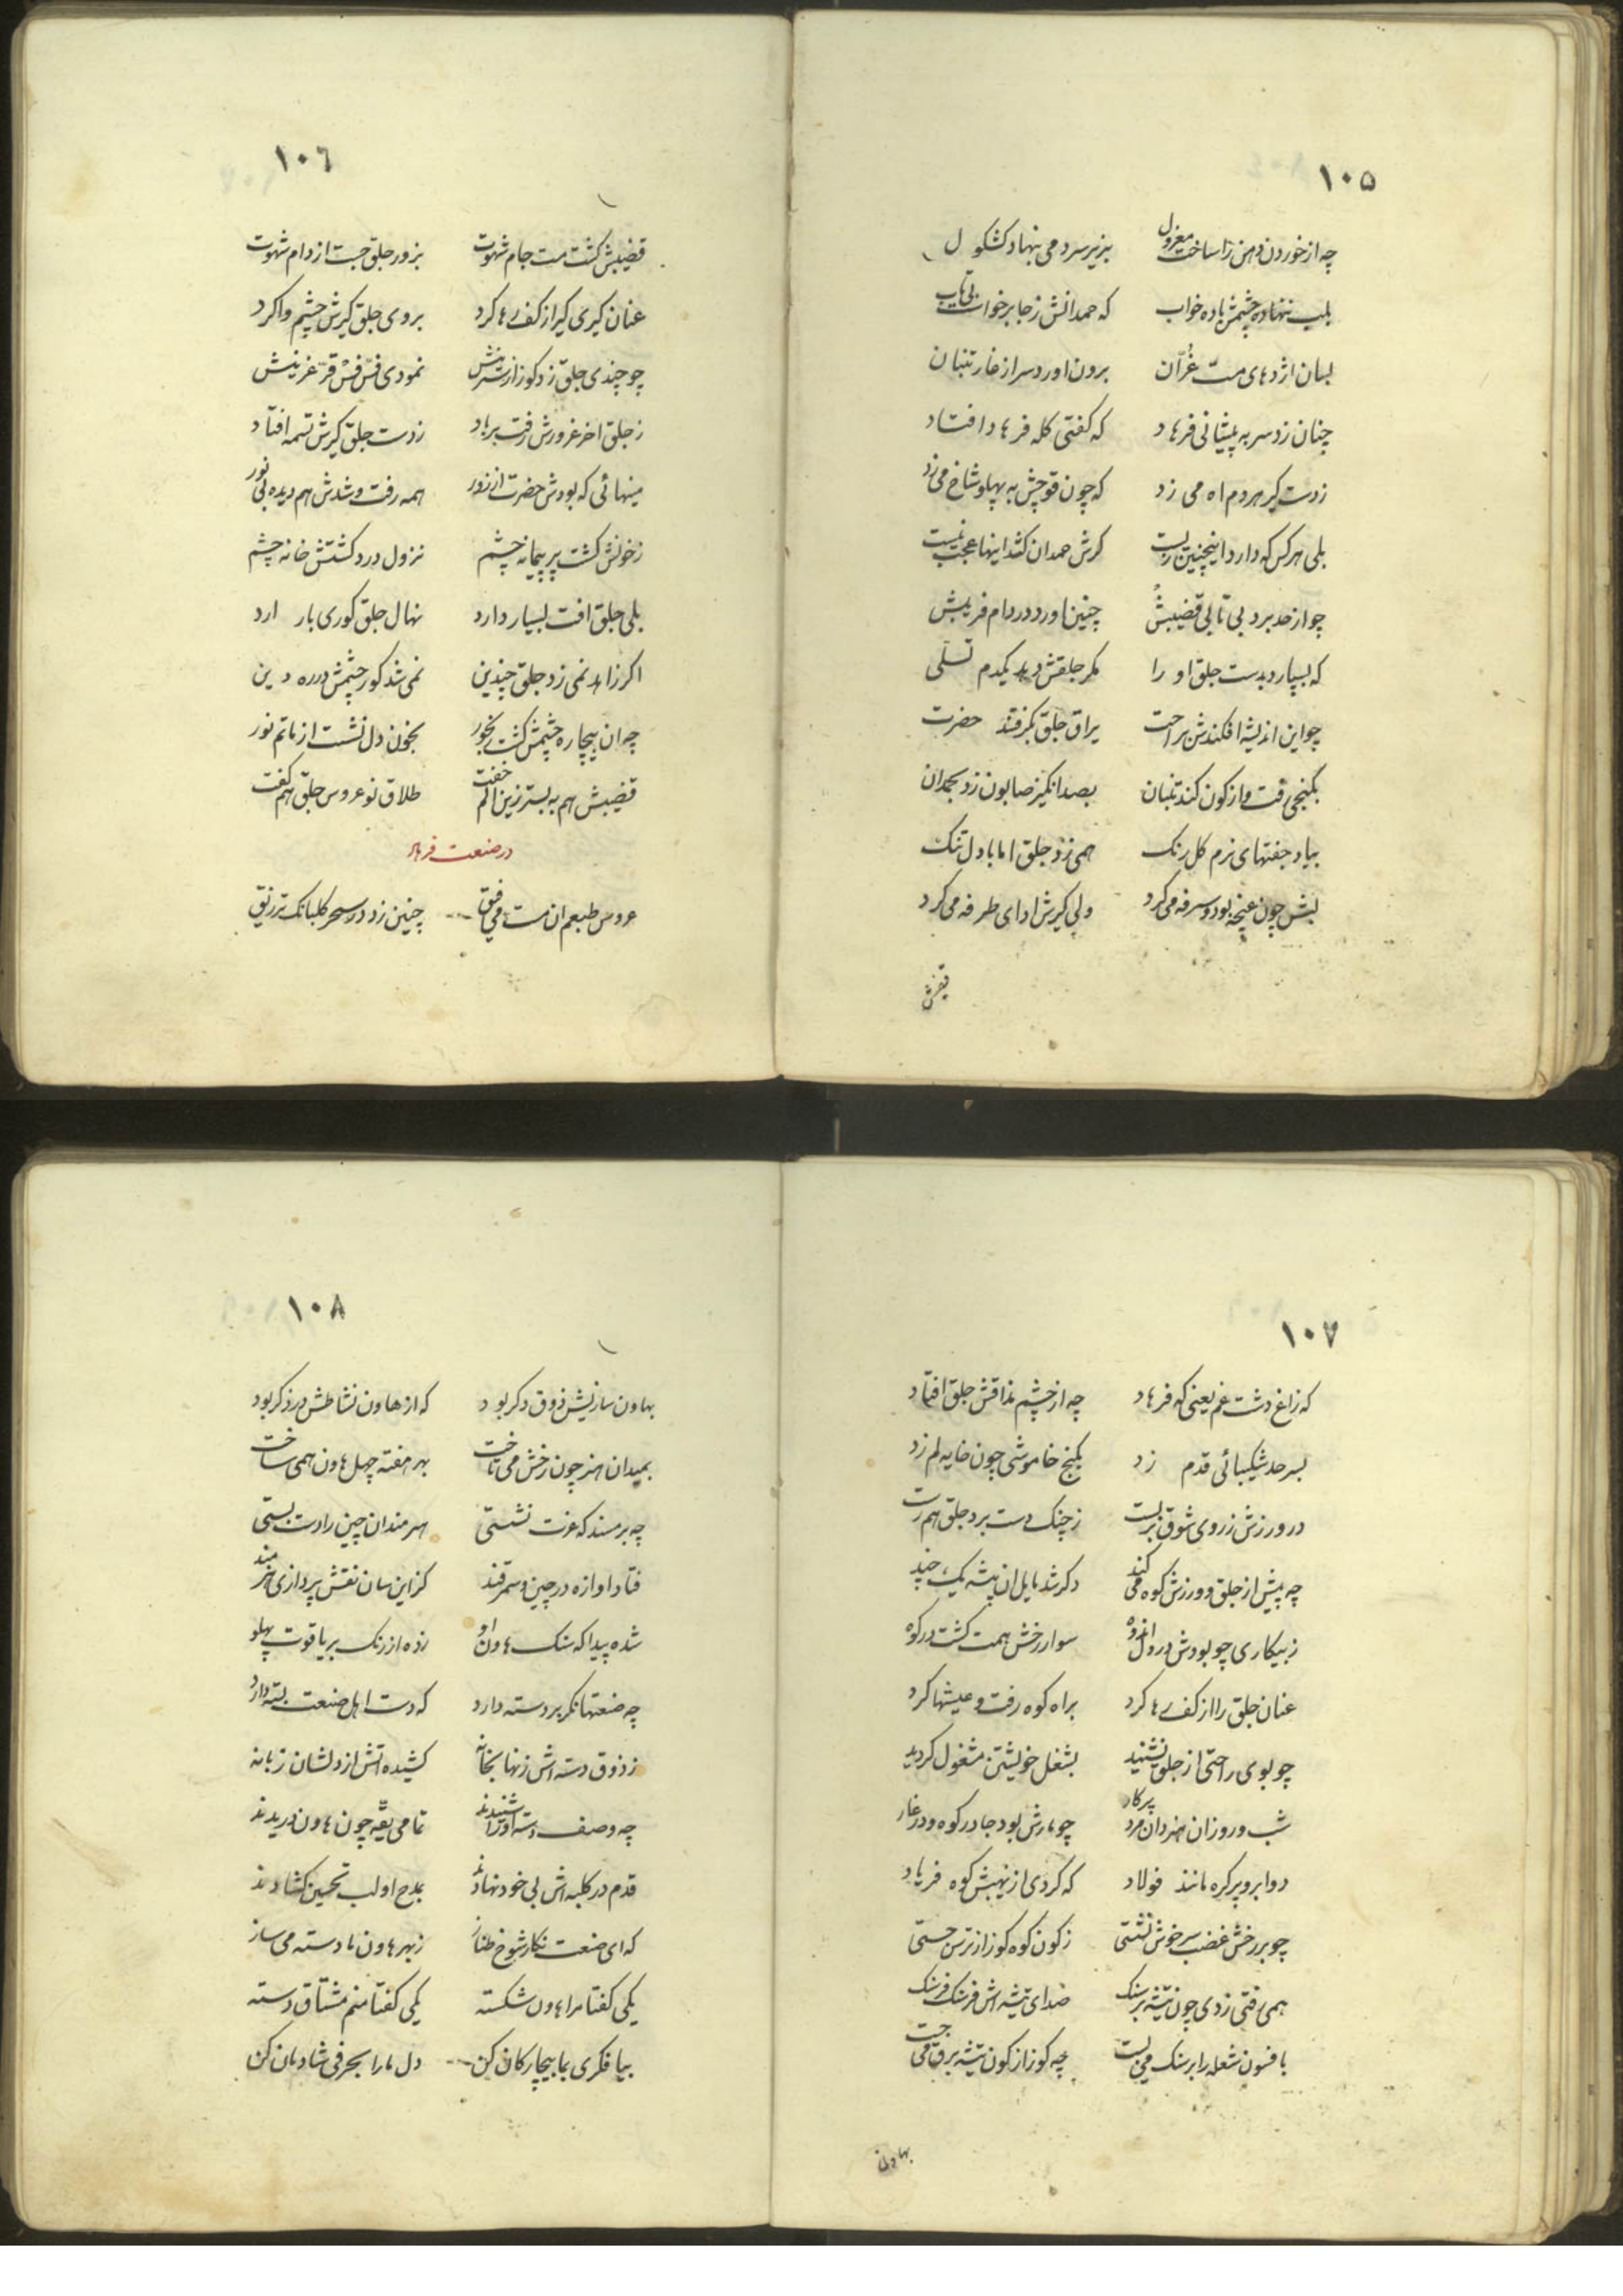 ۱۰۵
چه از خوردن دهن را ساخت معزول بزیر سر دمی بنهاد کشکول
بلب ننهاده چشمش باده خواب که حمدانش ز جا برخواست بی تاب
بسان اژدهای مست غرّان برون اورد سر از غار تنبان
چنان زد سر به پیشانی فرهاد که گفتی کله فرهاد افتاد
ز دست کیر هر دم اه می زد که چون قوچش به پهلو شاخ می زد
بلی هر کس که دارد اینچنین کرش حمدان کشد اینها عجب نیست
چو از حد برد بی تابی قضیبش چنین اورد در دام فریبش
که بسپارد بدست جلق او را مگر جلقش دهد یکدم تسلّی
چو این اندیشه افکندش براحت یراق جلق بگرفتند حضرت
بکنجی رفت و از کون کند تنبان بصد انگیز صابون زد بحمدان
بیاد جفتهای نرم گل رنگ همی زد جلق اما با دل تنگ
لبش چون غنچه بود و سرفه می کرد ولی کیرش ادای طرفه می کرد
۱۰٦
قضیبش گشت مست جام شهوت بزور جلق جست از دام شهوت
عنان گیری کیر از کف رها کرد بروی جلق کیرش چشم واکرد
چو چندی جلق زد کوز از سرینش نمودی فس فس قرّ غرینش
ز جلق اخر غرورش رفت برباد ز دست جلق کیرش تسمه افتاد
مینهائی که بودش حضرت از زور همه رفت و شدش هم دیده بی نور
ز خونش گشت پر پیمانه چشم نزول درد گشتش خانه چشم
بلی جلق افت بسیار دارد نهال جلق کوری بار ارد
اگر زاهد نمی زد جلق چندین نمی شد کور چشمش در ره دین
چه ان بیچاره چشمش گشت رنجور بخون دل نشست از ماتم نور
قضیبش هم به بستر زین الم خفت طلاق نو عروس جلق هم گفت
در صنعت فرهاد
عروس طبعم ان مست می فیق چنین زد در سحر گلبانک ترزیق
۱۰۷
که زاغ دشت غم یعنی که فرهاد چه از چشم مذاقش جلق افتاد
بسر حد شکیبائی قدم زد بکنج خاموشی چون خایه لم زد
در ورزش ز روی شوق بربست ز چنگ دست برد جلق هم رست
چه پیش از جلق و ورزش کوه می کند دگر شد مایل ان پیشه یک چند
ز بیکاری چو بودش در دل اندوه سوار رخش همت گشت در کوه
عنان جلق را از کف رها کرد براه کوه رفت و عیشها کرد
چو بوی راحتی از جلق نشنید بشغل خویشتن مشغول گردید
شب و روز ان هنردان مرد پرکار چو مارش بود جا در کوه و در غار
دو ابرو پر کره مانند فولاد که کردی از نهیبش کوه فریاد
چو بر رخش غضب سرخوش نشستی ز کون کوه کوز از ترس جستی
همی رفتی زدی چون تیشه بر سنگ صدای تیشه اش فرسنگ فرسنگ
بافسون شعله را بر سنگ می بست چه کوز از کون تیشه برق می جست
بهاون
۱۰۸
بهاون سازیش ذوق دگر بود که از هاون نشاطش در ذکر بود
بمیدان هنر چون رخش می تاخت بهر هفته چهل هاون همی ساخت
چه بر مسند که عزت نشستی هنرمندان چین را دست بستی
فتاد اوازه در چین و سمرقند کز این سان نقش پردازی هنرمند
شده پیدا که سنک هاون او زده از رنک بر یاقوت پهلو
چه صنعتها نکر بر دسته دارد که دست اهل صنعت بسته دارد
ز ذوق دسته اش زنها بخانه کشیده اتش از دلشان زبانه
چه وصف دسته او را شنیدند تمامی یقّه چون هاون دریدند
قدم در کلبه اش بی خود نهادند بمدح او لب تحسین گشادند
که ای صنعت نکار شوخ طناز ز بهر هاون ما دسته می ساز
یکی گفتا مرا هاون شکسته یکی گفتا منم مشتاق دسته
بیا فکری بما بیچارکان کن دل ما را بحرفی شادمان کن